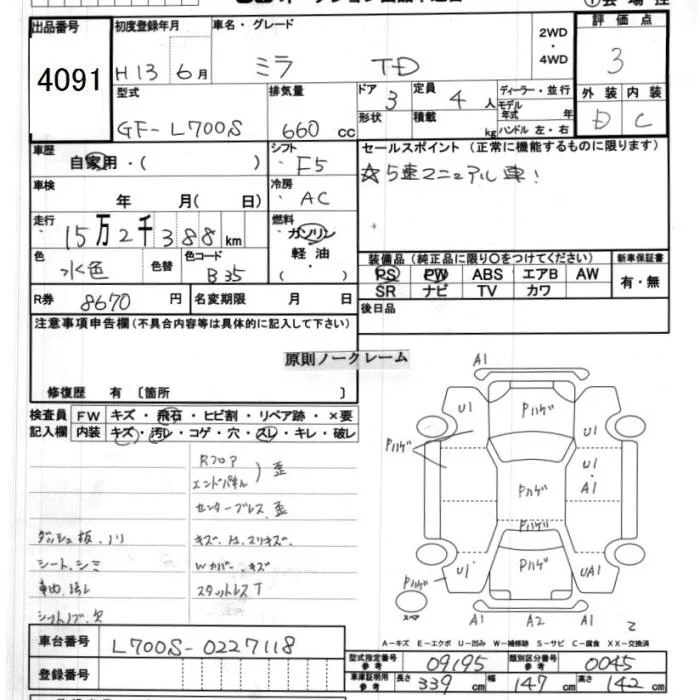 出品番号
4091
初度登録年月
H13 6月
車名・グレード
ミラ TD
2WD
・
4WD
評価点
3
型式
GF-L700S
排気量
660 cc
ドア
3
定員
4 人
形状
積載
kg
ディーラー・並行
モデル年式 年
ハンドル 左・右
外装 内装
D C
車歴
自家用・( )
シフト
F5
セールスポイント (正常に機能するものに限ります)
☆5速マニュアル車!
車検
年 月( 日)
冷房
AC
走行
15万2千388km
燃料
ガソリン
軽油・
( )
色
水色
色替
色コード
B35
装備品 (純正品に限り○をつけてください)
新車保証書
PS PW ABS エアB AW
有・無
SR ナビ TV カワ
R券 8670 円
名変期限 月 日
後日品
注意事項申告欄 (不具合内容等は具体的に記入して下さい)
原則ノークレーム
修復歴 有〔箇所 〕
検査員
記入欄
FW キズ・飛石・ヒビ割・リペア跡・×要
内装 キズ・汚レ・コゲ・穴・スレ・キレ・破レ
Rフロア
エンドパネル ) 歪
センターブレス 歪
ダッシュ板、ノリ
キズ、凹、スリキズ、
シート、シミ
Wカバー、キズ
車内、汚レ
スタットレスT
シフトノブ欠
A1
U1
Pハゲ
U1
Pハゲ
U1
A1
Pハゲ
Pハゲ
Pハゲ
Pハゲ
U1
UA1
スペア
A1 A2 A1
2
A－キズ E－エクボ U－凹み W－補修跡 S－サビ C－腐食 XX－交換済
車台番号
L700S-0227118
登録番号
型式指定番号
参考
09195
類別区分番号
参考
0045
車庫証明用
参考
長さ 339 cm
幅 147 cm
高さ 142 cm